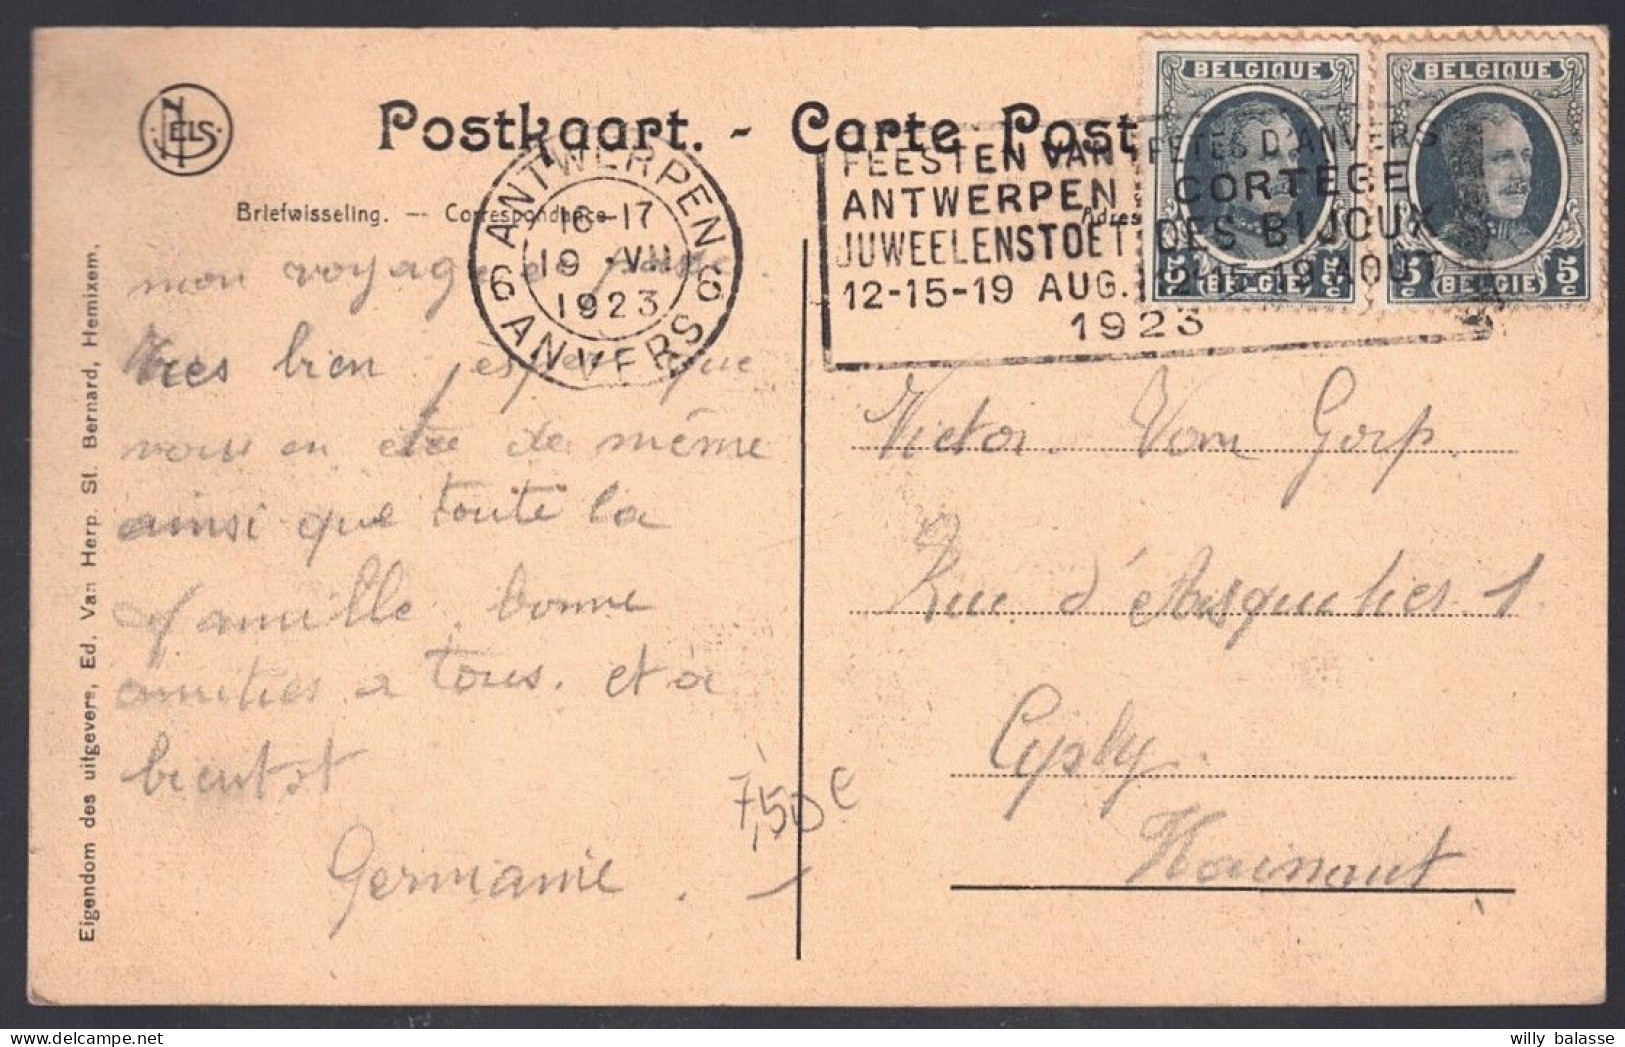 NELS
Postkaart. - Carte Post
Briefwisseling. — Correspondance
Adres
ANTWERPEN 6
16-17
19 ·VII
1923
6 ANVERS
FEESTEN VAN FETES D'ANVERS
ANTWERPEN CORTEGE
JUWEELENSTOET DES BIJOUX
12-15-19 AUG. 12-15-19 AOUT
1923
BELGIQUE
5c BELGIE 5c
BELGIQUE
5c BELGIE 5c
mon voyage
tres bien espere que
vous en ete de même
ainsi que toute la
famille. bonne
amities a tous. et a
bientot
Germanie.
7,50 €
Victor Van Gorp.
Rue d' 1
Ciply.
Hainaut
Eigendom des uitgevers, Ed. Van Herp. St. Bernard, Hemixem.
willy balasse